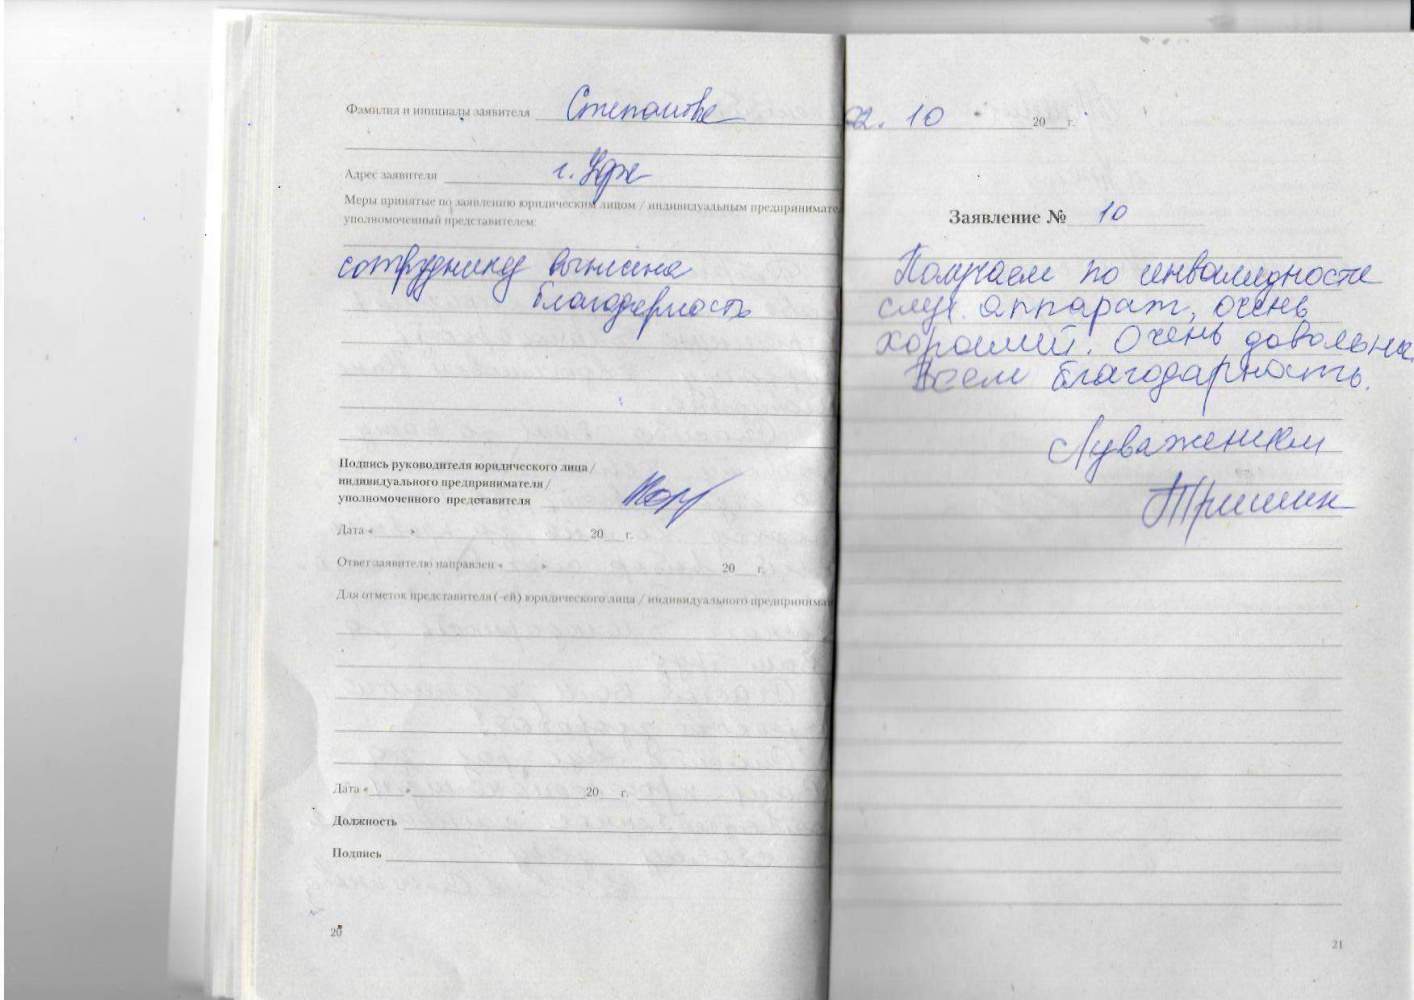 Фамилия и инициалы заявителя Степанова
Адрес заявителя г. Уфа
Меры принятые по заявлению юридическим лицом / индивидуальным предпринимате
уполномоченный представителем:
сотруднику вынесена
благодарность
Подпись руководителя юридического лица /
индивидуального предпринимателя /
уполномоченного представителя
Дата « » 20 г.
Ответ заявителю направлен « » 20 г.
Для отметок представителя (-ей) юридического лица / индивидуального предпринима
Дата « » 20 г.
Должность
Подпись
20
02. 10 20 г.
Заявление № 10
Получаем по инвалидности
слух. аппарат, очень
хороший. Очень довольны.
Всем благодарность.
С уважением
Тришин
21